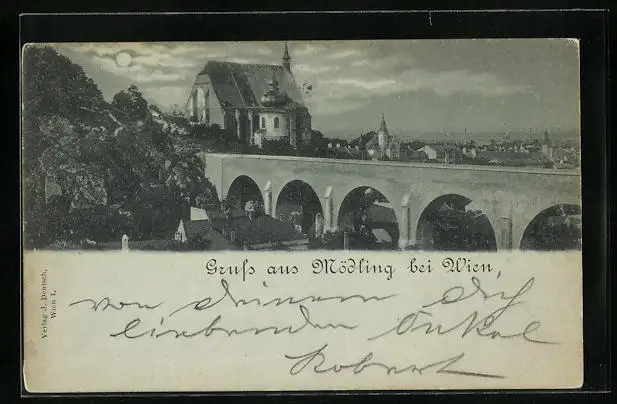 Gruß aus Mödling bei Wien,
von deinem Dich
liebenden Onkel
Robert
Verlag J. Deutsch,
Wien I.